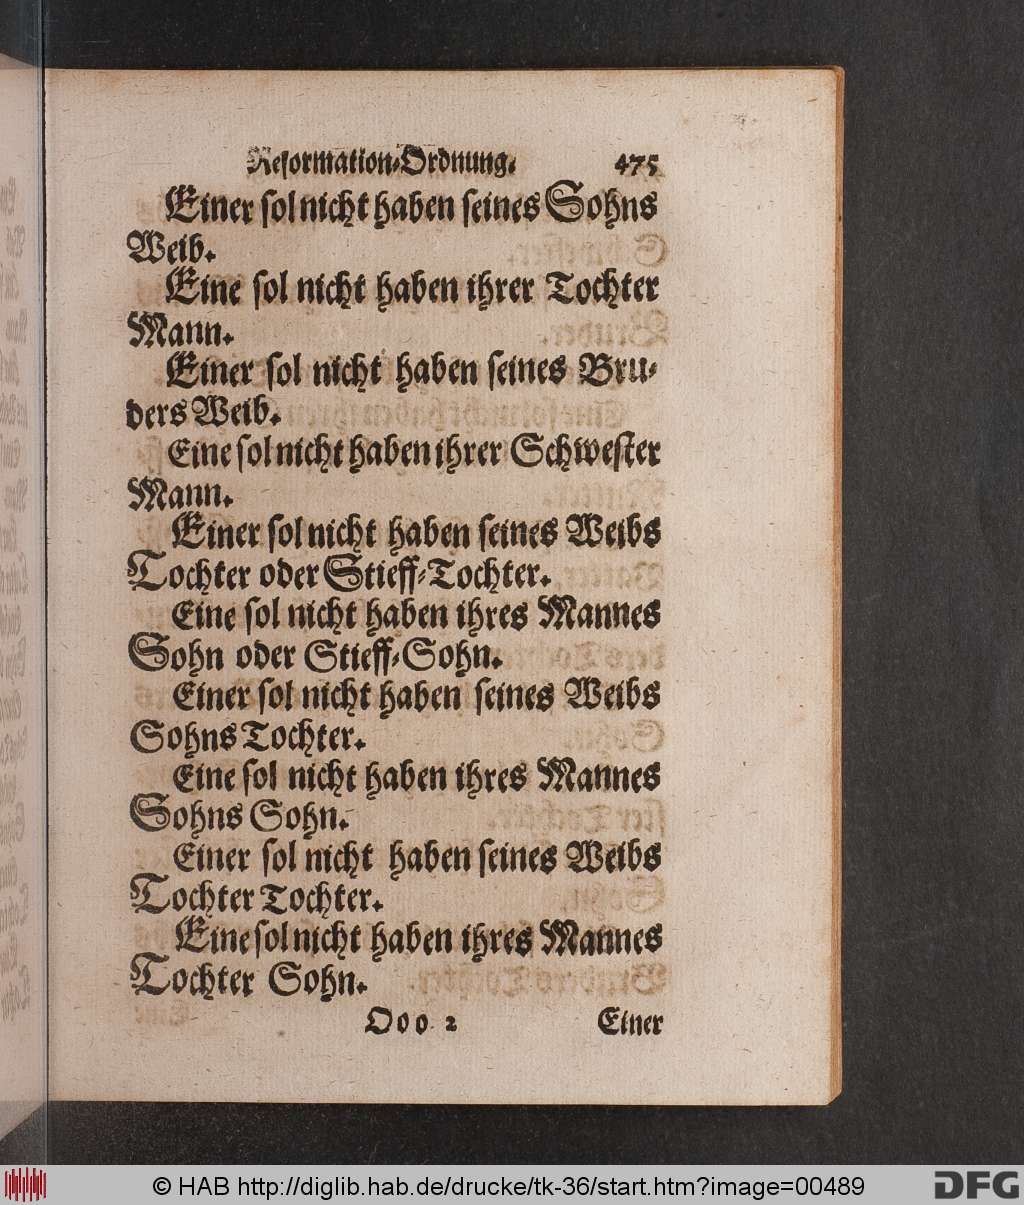 Reformation-Ordnung. 475
Einer sol nicht haben seines Sohns
Weib.
Eine sol nicht haben ihrer Tochter
Mann.
Einer sol nicht haben seines Bru-
ders Weib.
Eine sol nicht haben ihrer Schwester
Mann.
Einer sol nicht haben seines Weibs
Tochter oder Stieff-Tochter.
Eine sol nicht haben ihres Mannes
Sohn oder Stieff-Sohn.
Einer sol nicht haben seines Weibs
Sohns Tochter.
Eine sol nicht haben ihres Mannes
Sohns Sohn.
Einer sol nicht haben seines Weibs
Tochter Tochter.
Eine sol nicht haben ihres Mannes
Tochter Sohn.
Ooo 2 Einer
© HAB http://diglib.hab.de/drucke/tk-36/start.htm?image=00489
DFG